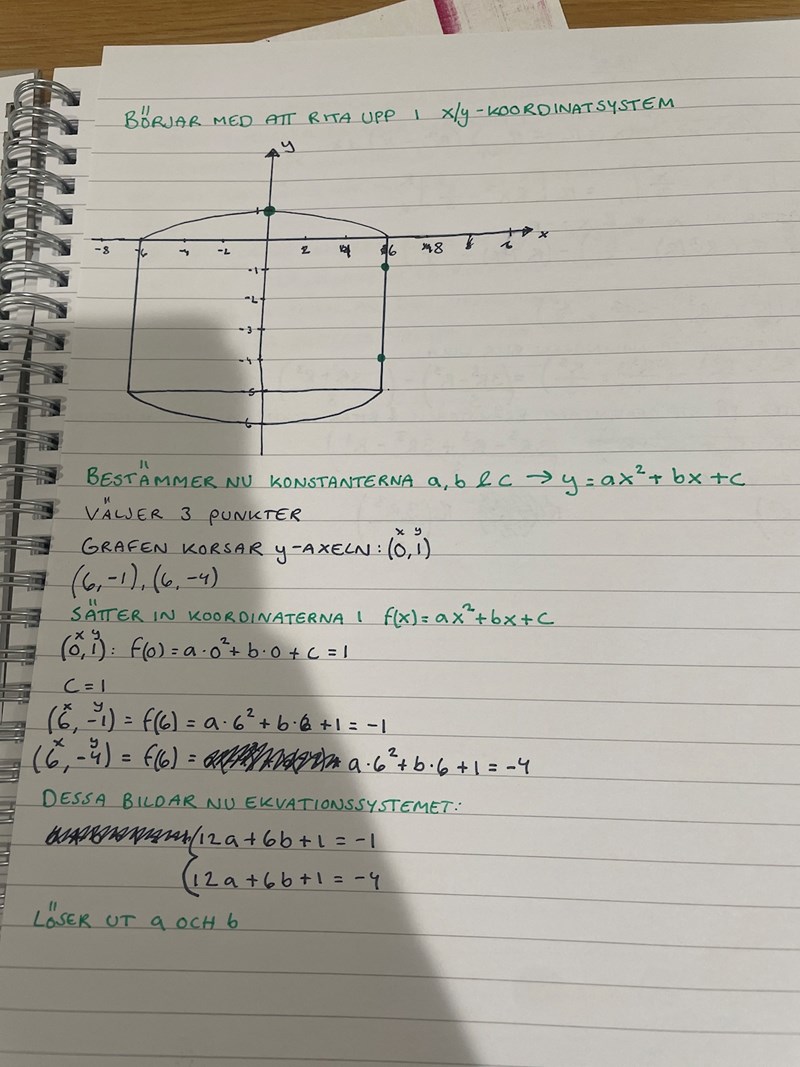 BÖRJAR MED ATT RITA UPP I x/y-KOORDINATSYSTEM
y
1
-8 -6 -4 -2 2 4 6 8 x
-1
-2
-3
-4
-5
6
BESTÄMMER NU KONSTANTERNA a, b & c → y = ax² + bx + c
VÄLJER 3 PUNKTER
x y
GRAFEN KORSAR y-AXELN: (0,1)
(6,-1), (6,-4)
SÄTTER IN KOORDINATERNA I f(x) = ax² + bx + c
x y
(0,1): f(0) = a·0² + b·0 + c = 1
c = 1
x y
(6,-1) = f(6) = a·6² + b·6 + 1 = -1
x y
(6,-4) = f(6) = a·6² + b·6 + 1 = -4
DESSA BILDAR NU EKVATIONSSYSTEMET:
{12a + 6b + 1 = -1
12a + 6b + 1 = -4
LÖSER UT a OCH b